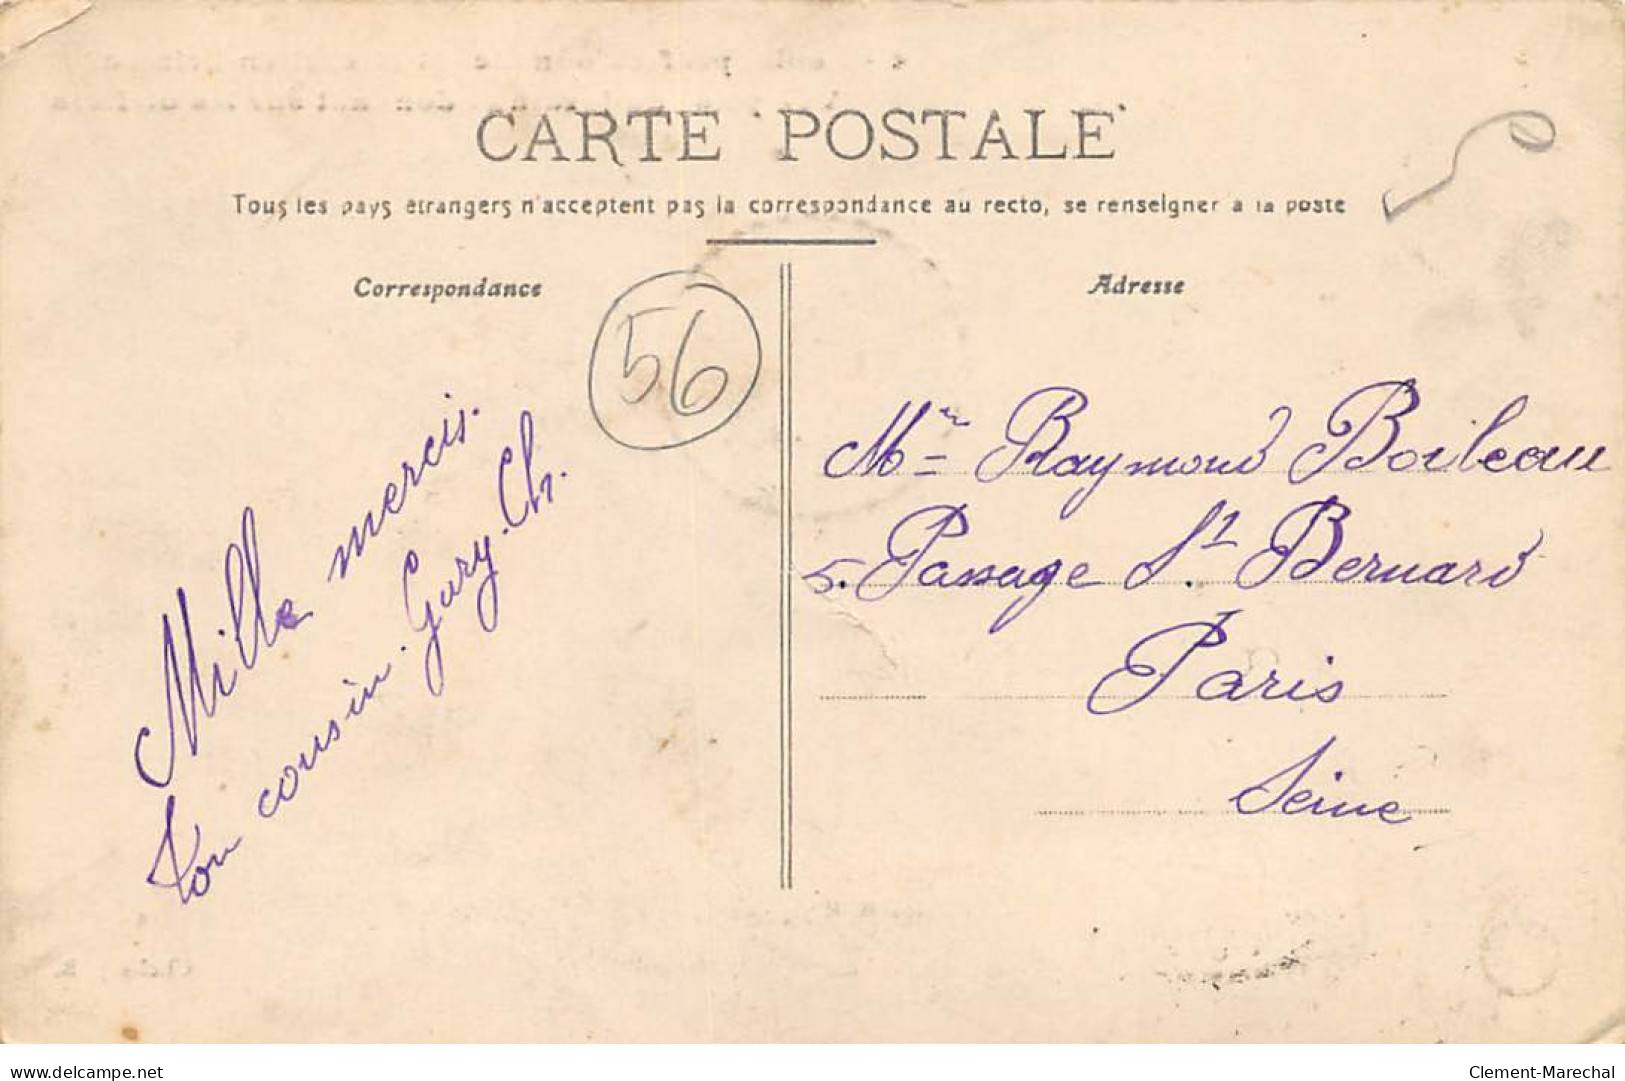 CARTE POSTALE
Tous les pays étrangers n'acceptent pas la correspondance au recto, se renseigner à la poste
Correspondance
Adresse
56
Mille mercis.
Ton cousin. Gury. Ch.
Mr Raymond Boileau
5. Passage St. Bernard
Paris
Seine
delcampe.net
Clement-Marechal